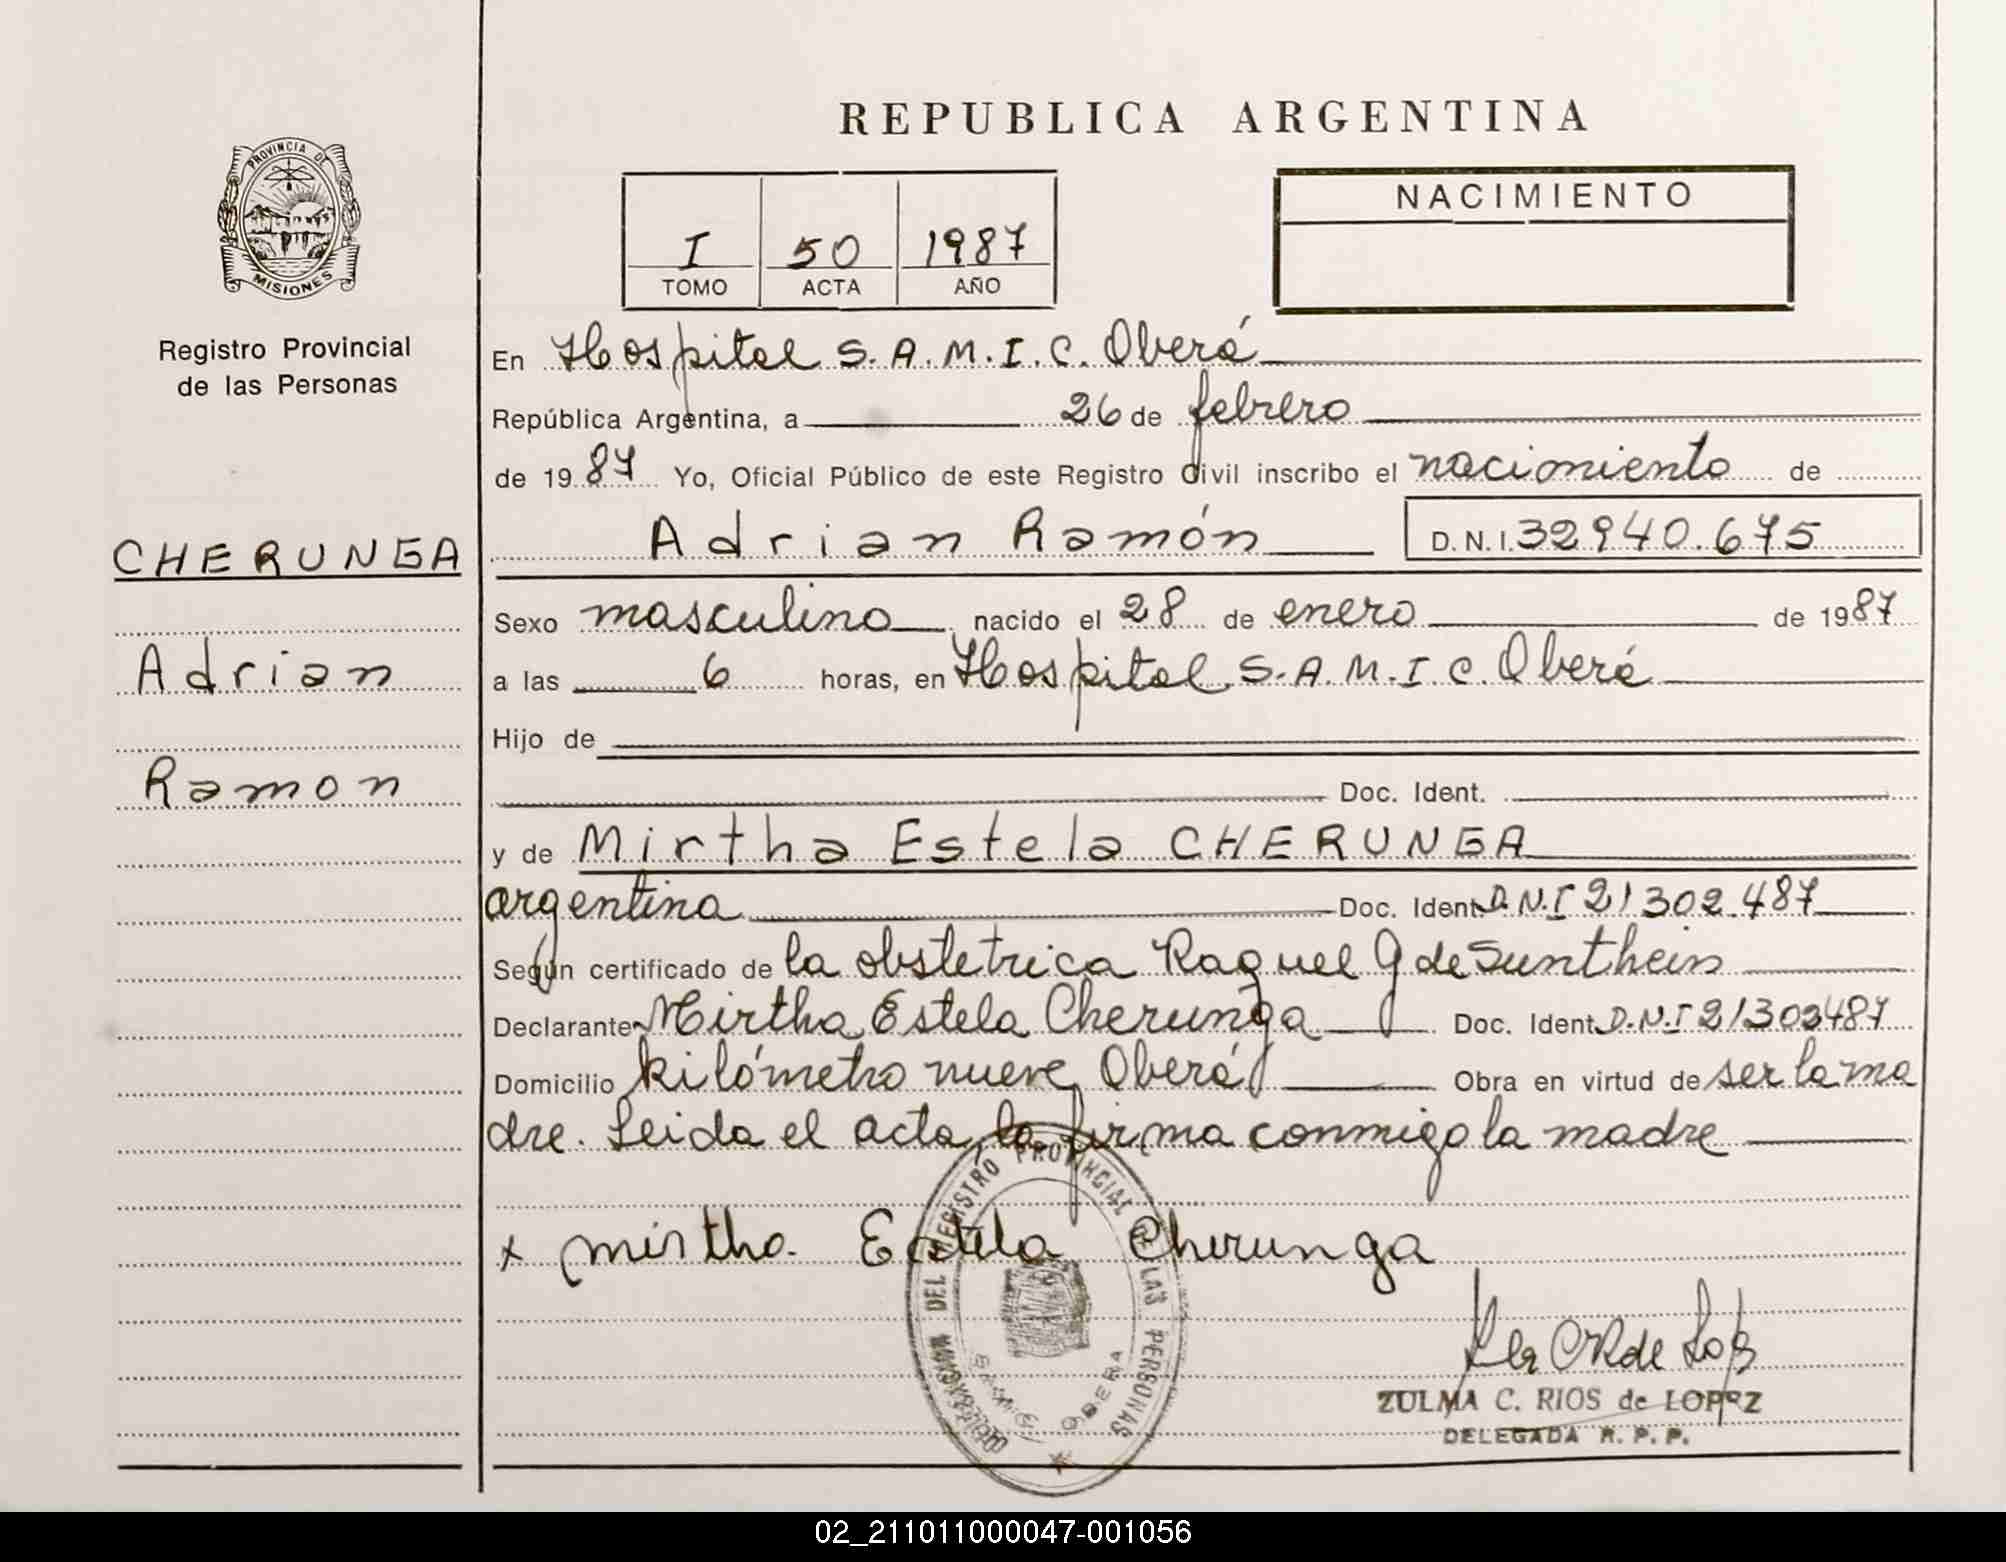 REPUBLICA ARGENTINA
PROVINCIA DE
MISIONES
Registro Provincial
de las Personas
I 50 1987
TOMO ACTA AÑO
NACIMIENTO
En Hospital S.A.M.I.C. Oberá
República Argentina, a 26 de febrero
de 1987 Yo, Oficial Público de este Registro Civil inscribo el nacimiento de
CHERUNGA
Adrian Ramón D.N.I. 32940.675
Sexo masculino nacido el 28 de enero de 1987
Adrian
a las 6 horas, en Hospital S.A.M.I.C. Oberá
Hijo de
Ramon
Doc. Ident.
y de Mirtha Estela CHERUNGA
argentina Doc. Ident. D.N.I 21302.487
Según certificado de la obstetrica Raquel G de Sunthein
Declarante Mirtha Estela Cherunga Doc. Ident. D.N.I 21302487
Domicilio kilómetro nueve, Oberá Obra en virtud de ser la ma
dre. Leida el acta, la firma conmigo la madre
x mirtha Estela Cherunga
DEL REGISTRO PROVINCIAL DE LAS PERSONAS
OBERA
ZULMA C. RIOS de LOPEZ
DELEGADA R. P. P.
02_211011000047-001056